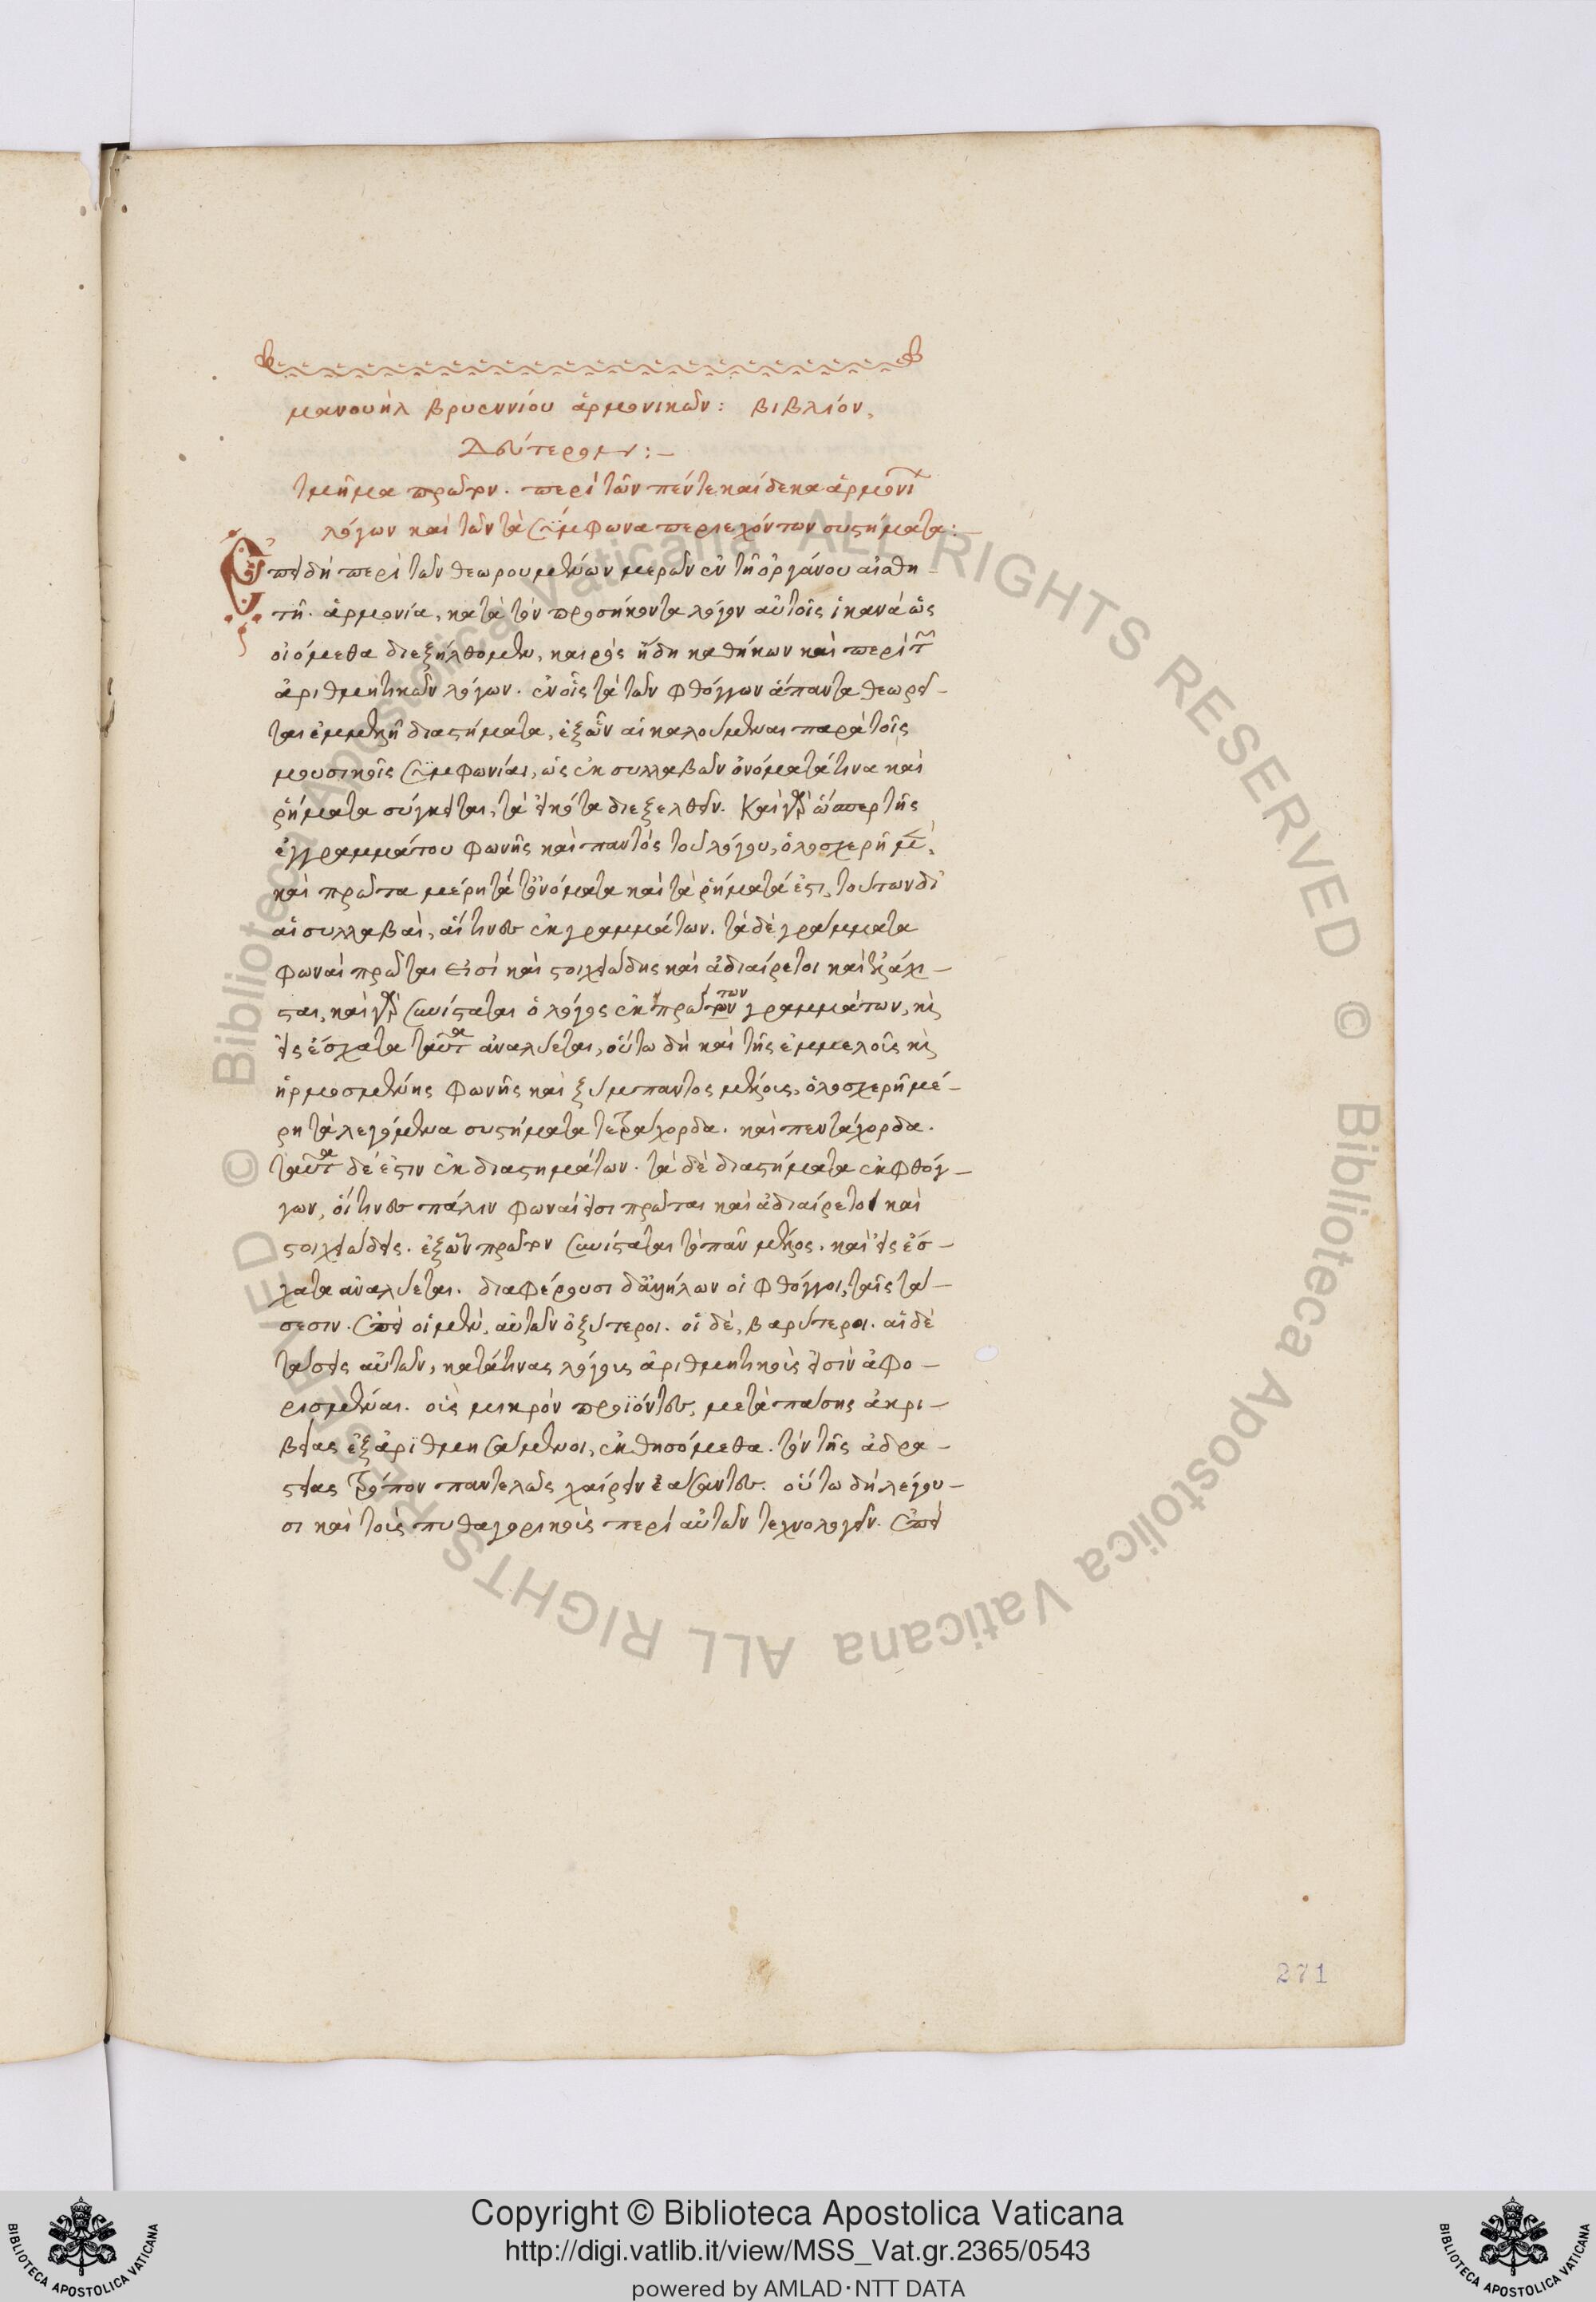 μανουὴλ βρυεννίου ἁρμονικῶν: βιβλίον,
Δεύτερον:–
τμῆμα πρῶτον. περὶ τῶν πέντε καίδεκα ἁρμονι
λόγων καὶ τῶν τὰ σύμφωνα περιεχόντων συστήματα:–
Ἐπειδὴ περὶ τῶν θεωρουμένων μερῶν ἐν τῇ ὀργάνου αἰσθη–
τῇ. ἁρμονία, κατὰ τὸν προσήκοντα λόγον αὐτοῖς ἱκανά ὡς
οἰόμεθα διεξήλθομεν, καιρὸς ἤδη καθήκων καὶ περὶ τῶν
ἀριθμητικῶν λόγων. ἐν οἷς τὰ τῶν φθόγγων ἅπαντα θεωρεῖ–
ται ἐμμελῆ διαστήματα, ἐξ ὧν αἱ καλούμεναι παρὰ τοῖς
μουσικοῖς συμφωνίαι, ὡς ἐκ συλλαβῶν ὀνόματά τινα καὶ
ῥήματα σύγκειται, τὰ εἰκότα διεξελθεῖν. Καὶ γὰρ ὥσπερ τῆς
ἐγγραμμάτου φωνῆς καὶ παντὸς τοῦ λόγου, ὁλοσχερῆ μὲν,
καὶ πρῶτα μέρη τὰ τὀνόματα καὶ τὰ ῥήματά ἐστι, τούτων δὲ
αἱ συλλαβαὶ, αἵτινες ἐκ γραμμάτων. τὰ δὲ γράμματα
φωναὶ πρῶται εἰσὶ καὶ στοιχειώδης καὶ ἀδιαίρετοι καὶ ἐλάχι–
σται, καὶ γὰρ συνίσταται ὁ λόγος ἐκ πρώτων γραμμάτων, καὶ
εἰς ἔσχατα ταῦτα ἀναλύεται, οὕτω δὴ καὶ τῆς ἐμμελοῖς καὶ
ἡρμοσμένης φωνῆς καὶ ξύμπαντος μέλους, ὁλοσχερῆ μέ–
ρη τὰ λεγόμενα συστήματα τετράχορδα. καὶ πεντάχορδα.
ταῦτα δέ ἐστιν ἐκ διαστημάτων. τὰ δὲ διαστήματα ἐκ φθόγ–
γων, οἵτινες πάλιν φωναί εἰσι πρῶται καὶ ἀδιαίρετοι καὶ
στοιχειώδεις. ἐξ ὧν πρώτων συνίσταται τὸ πᾶν μέλος. καὶ εἰς ἔσ–
χατα ἀναλύεται. διαφέρουσι δ' ἀλλήλων οἱ φθόγγοι, ταῖς τά–
σεσιν. ἐπεὶ οἱ μὲν, αὐτῶν ὀξύτεροι. οἱ δὲ, βαρύτεροι. αἱ δὲ
τάσεις αὐτῶν, κατά τινας λόγους ἀριθμητικοὺς εἰσὶν ἀφο–
ρισμέναι. οὓς μικρὸν προϊόντες, μετὰ πάσης ἀκρι–
βείας ἐξαριθμησάμενοι, ἐκθησόμεθα. τὸν τῆς ἀδρα–
στείας τρόπον παντελῶς χαίρειν ἐάσαντες. οὕτω δὴ λέγου–
σι καὶ τοὺς πυθαγορικοὺς περὶ αὐτῶν τεχνολογεῖν. ἐπεὶ
271
Copyright © Biblioteca Apostolica Vaticana
http://digi.vatlib.it/view/MSS_Vat.gr.2365/0543
powered by AMLAD·NTT DATA